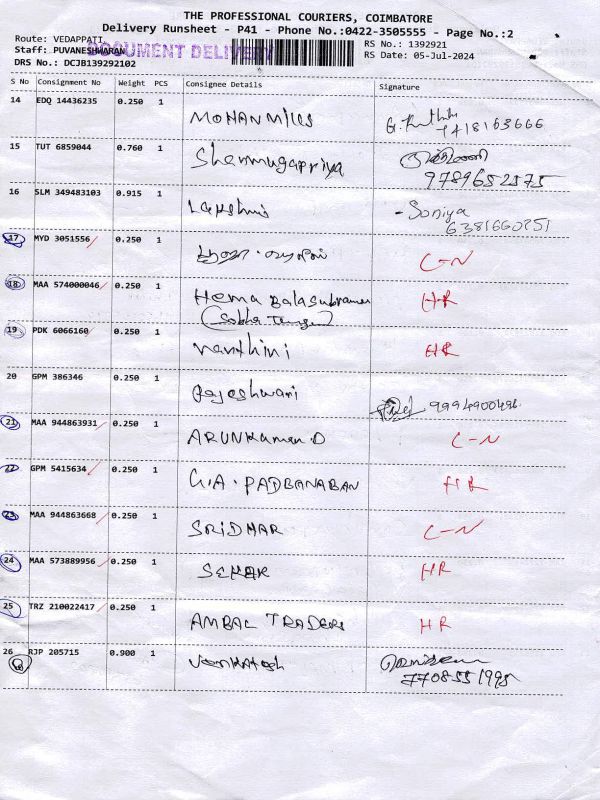 THE PROFESSIONAL COURIERS, COIMBATORE
Delivery Runsheet - P41 - Phone No.:0422-3505555 - Page No.:2
Route: VEDAPPATI
RS No.: 1392921
Staff: PUVANESHWARAN
DOCUMENT DELIVERY
RS Date: 05-Jul-2024
DRS No.: DCJB139292102
S No Consignment No Weight PCS Consignee Details Signature
14 EDQ 14436235 0.250 1 MOHAN Mills
15 TUT 6859044 0.760 1 Shenmugappriya
9789652575
16 SLM 349483103 0.915 1 Lakshmi - Soniya
6381660251
17 MYD 3051556 0.250 1 C-N
18 MAA 574000046 0.250 1 Hema Balasubraman HR
19 PDK 6066160 0.250 1 nanthini HR
20 GPM 386346 0.250 1 Rajeshwari
21 MAA 944863931 0.250 1 ARUNKumar.D C-N
22 GPM 5415634 0.250 1 G.A. PADBANABAN HR
23 MAA 944863668 0.250 1 SRIDHAR C-N
24 MAA 573889956 0.250 1 SEKAR HR
25 TRZ 210022417 0.250 1 AMBAL TRADERS HR
26 RJP 205715 0.900 1 Venkatesh
7708551995